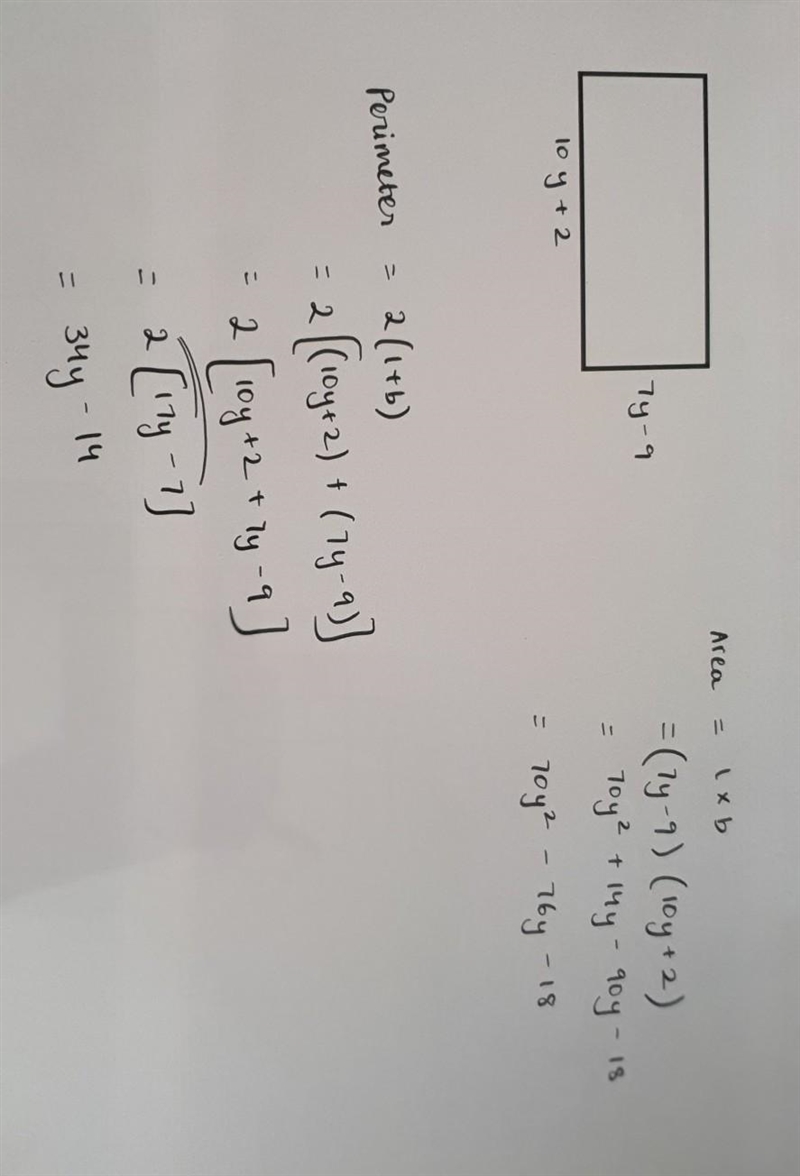 7y-9
10y+2
Area = l × b
=(7y-9)(10y+2)
= 70y² + 14y - 90y - 18
= 70y² - 76y - 18
Perimeter = 2(l+b)
= 2[(10y+2) + (7y-9)]
= 2[10y+2 + 7y-9]
= 2[17y - 7]
= 34y - 14